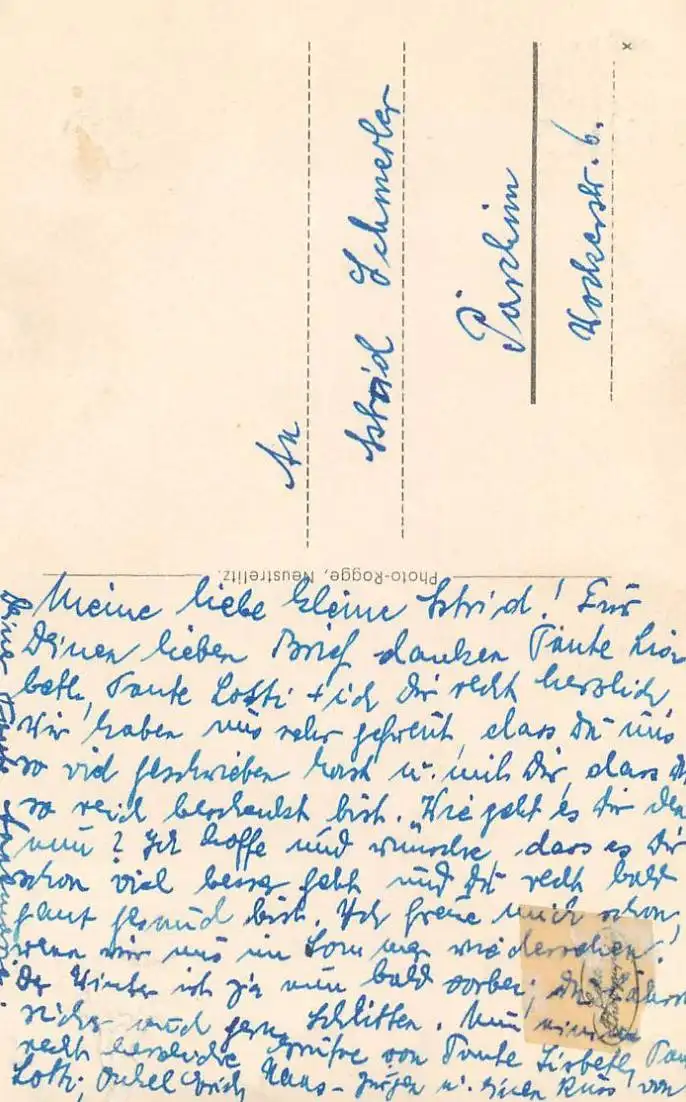 An
Astrid Schmerler
Parchim
str. 6.
Photo-Rogge, Neustrelitz.
Meine liebe kleine Astrid! Für
Deinen lieben Brief danken Tante Lies
beth, Tante Lotti + ich Dir recht herzlich,
wir haben uns sehr gefreut, dass Du uns
so viel geschrieben hast u. mit Dir, dass Du
so reich beschenkt bist. Wie geht es Dir den
nun? Ich hoffe und wünsche, dass es Dir
schon viel besser geht und Du recht bald
ganz gesund bist. Ich freue mich schon,
wenn wir uns im Sommer wiedersehen!
Der Winter ist ja nun bald vorbei, Du
sicher auch gern Schlitten. Nun
recht herzliche Grüße von Tante Lisbeth, Tan
Lotti, Onkel Erich Hans-Jürgen u. einen Kuss von
Deiner Tante